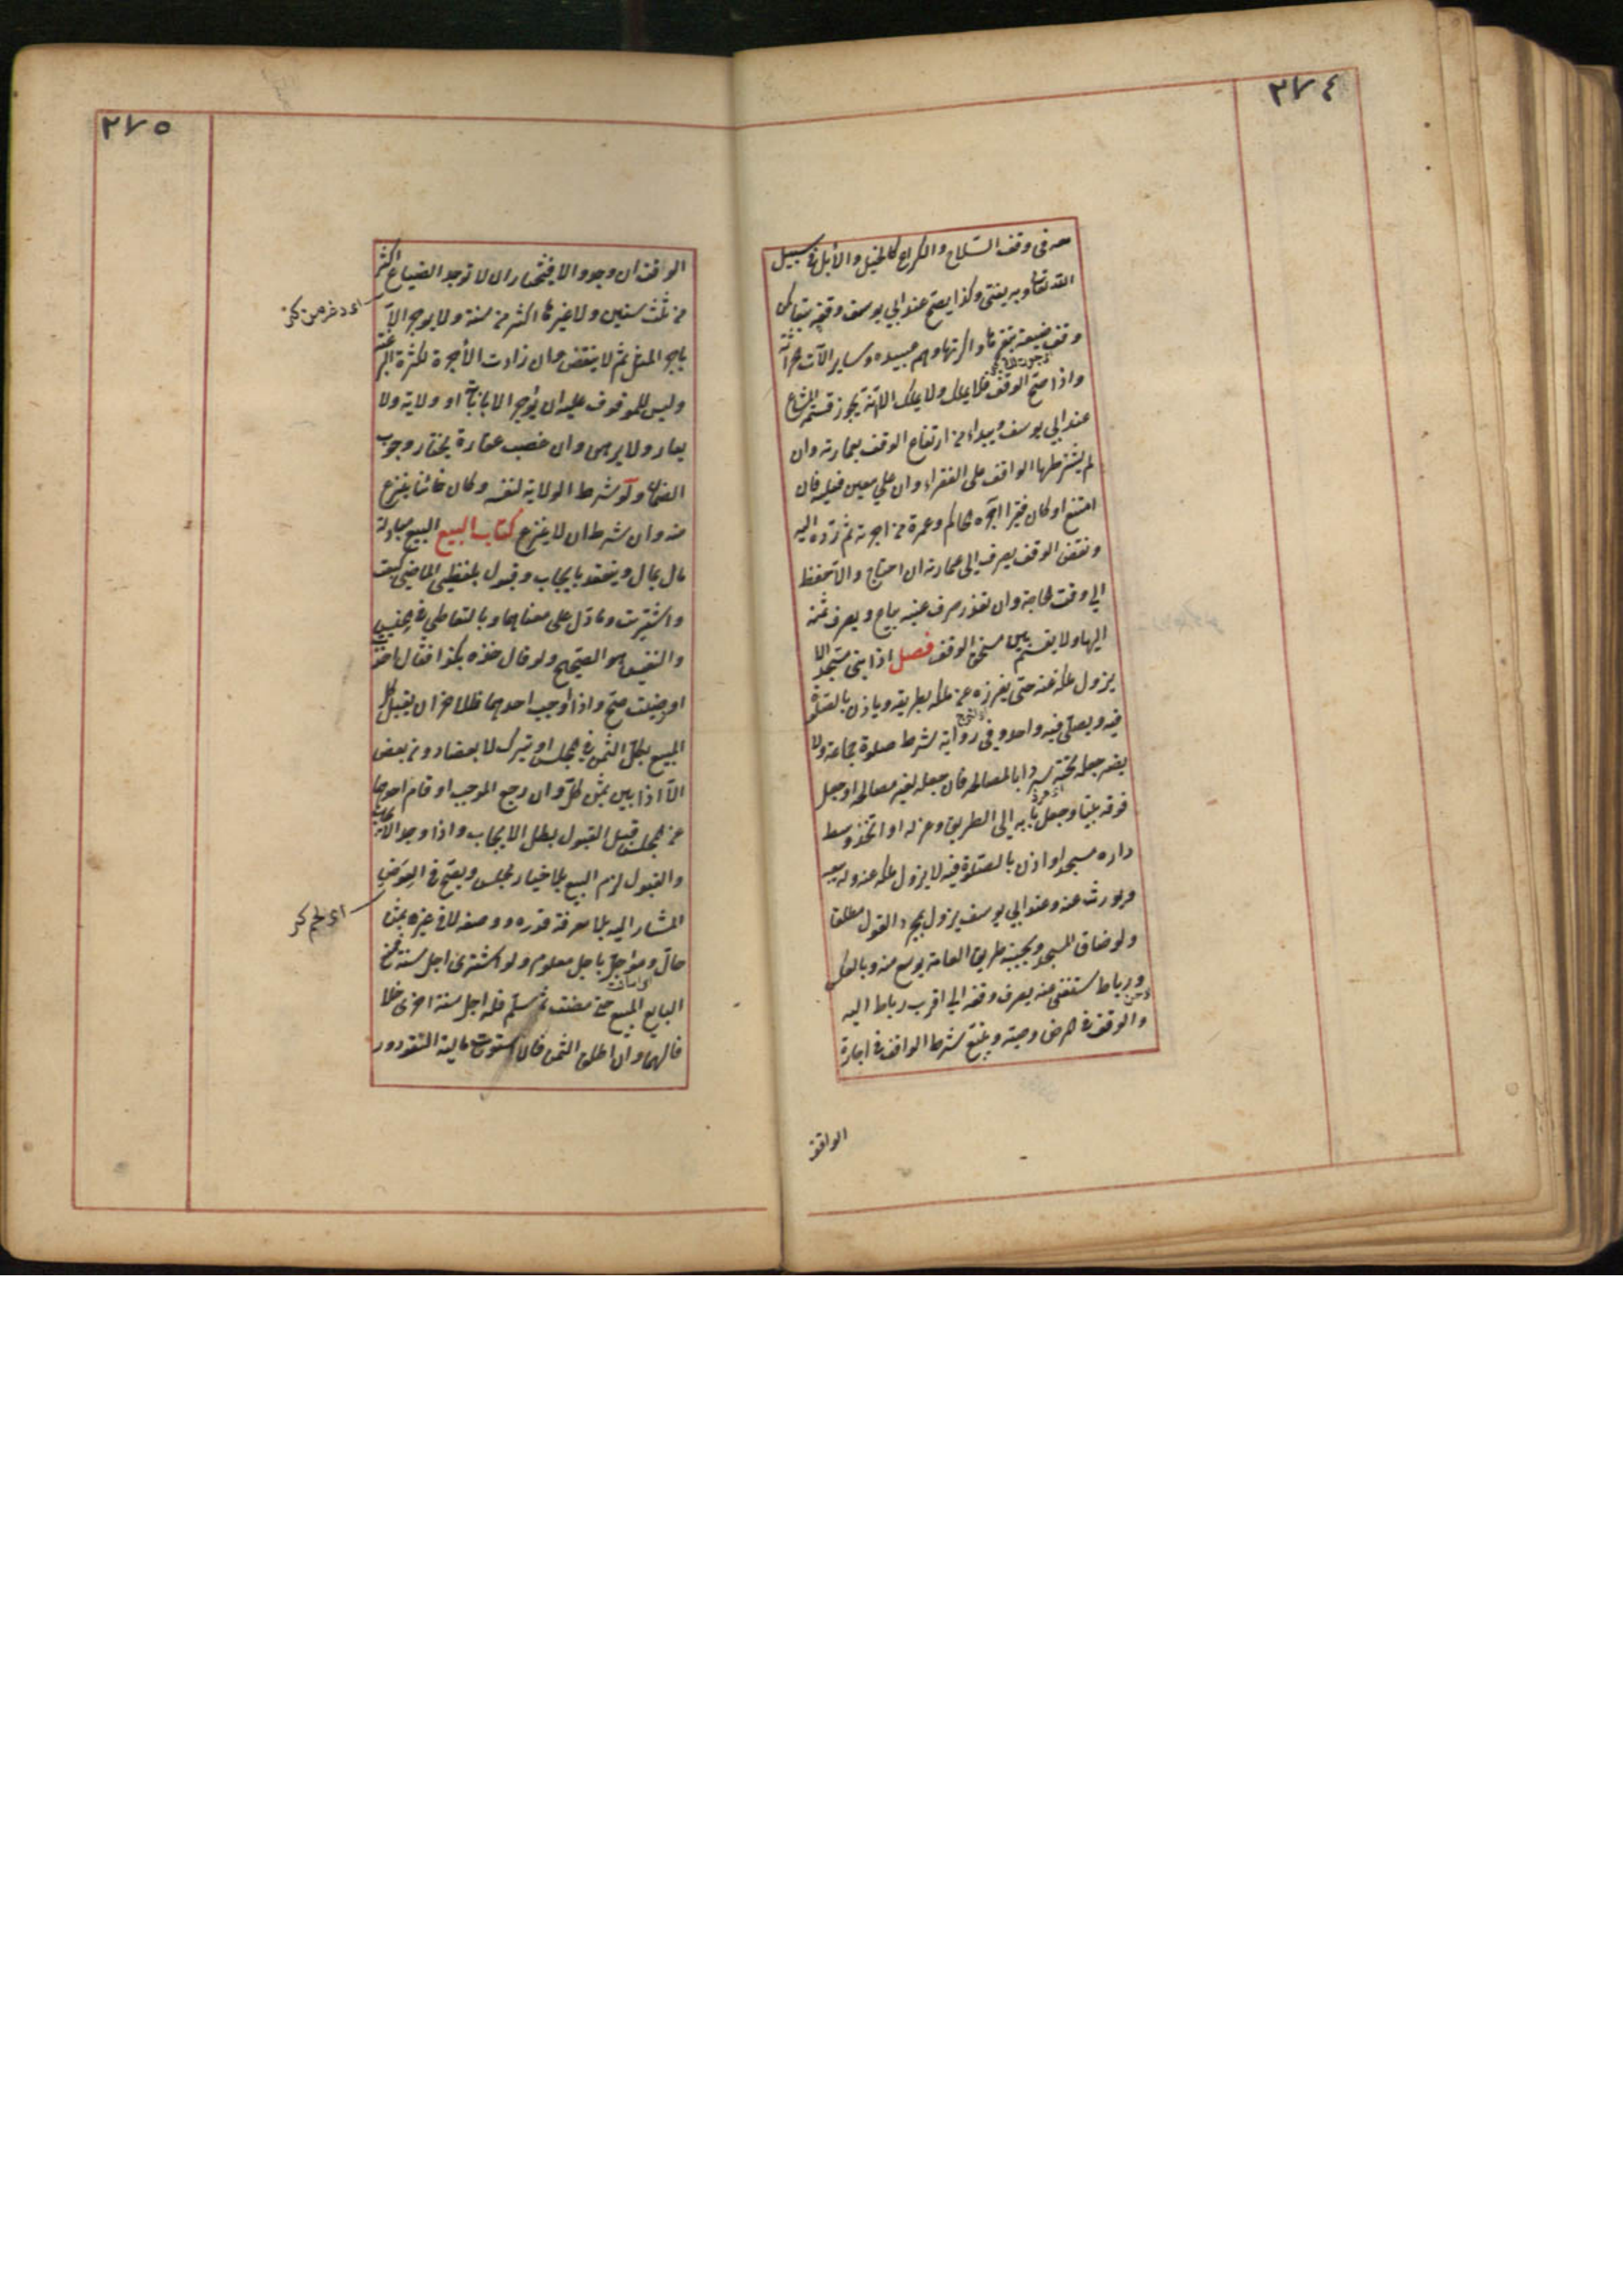 ٣٧٤
صح في وقف السلاح والكراع كالخيل والابل في سبيل
الله تعالى وبه يفتى وكذا يصح عند ابي يوسف وقفه تبعا كمن
وقف ضيعة ببقرها واكرتها وهم عبيده وساير الآت حراثة
واذا صح الوقف فلا يملك ولا يملك الا انه يجوز قسمة المشاع
عند ابي يوسف ويبداء من ارتفاع الوقف بعمارته وان
لم يشترطها الواقف على الفقراء وان على معين فعليه فان
امتنع او كان فقيرا آجره الحاكم وعمره من اجرته ثم رده اليه
ونقض الوقف يصرف الى عمارته ان احتاج والا حفظ
الى وقت الحاجة وان تعذر صرف عينه يباع ويصرف ثمنه
اليها ولا يقسم بين مستحق الوقف فصل اذا بنى مسجدا لا
يزول ملكه عنه حتى يفرزه عن ملكه بطريقه وياذن بالصلوة
فيه ويصلى فيه واحد وفي رواية شرط صلوة جماعة ولا
يضر جعله تحته سردابا لمصالحه فان جعله لغير مصالحه او جعل
فوقه بيتا وجعل بابه الى الطريق وعزله او اتخذ وسط
داره مسجدا واذن بالصلوة فيه لا يزول ملكه عنه وله بيعه
ويورث عنه وعند ابي يوسف يزول بمجرد القول مطلقا
ولو ضاق المسجد وبجنبه طريق العامة يوسع منه وبالعكس
ورباط استغنى عنه يصرف وقفه الى اقرب رباط اليه
والوقف في المرض وصية ويتبع شرط الواقف في اجارة
الواقف
٣٧٥
الواقف ان وجد والا فيختار ان لا توجر الضياع اكثر
من ثلث سنين ولا غيرها اكثر من سنة ولا يوجر الا
باجر المثل ثم لا ينقض ان زادت الاجرة لكثرة الرغبة
وليس للموقوف عليه ان يؤجر الا بانابة او ولاية ولا
يعار ولا يرهن وان غصب عقارة يختار وجوب
الضمان ولو شرط الولاية لنفسه وكان خائنا ينزع
منه وان شرط ان لا ينزع كتاب البيع البيع مبادلة
مال بمال وينعقد بايجاب وقبول بلفظي الماضي كبعت
واشتريت وما دل على معناهما وبالتعاطي في الخسيس
والنفيس هو الصحيح ولو قال خذه بكذا فقال اخذت
او رضيت صح واذا اوجب احدهما فللاخر ان يقبل كل
المبيع بكل الثمن في المجلس او يترك لا بعضه دون بعض
الا اذا بين ثمن كل وان رجع الموجب او قام احدهما
عن المجلس قبل القبول بطل الايجاب واذا وجد الايجاب
والقبول لزم البيع بلا خيار مجلس ويصح في العوض
المشار اليه بلا معرفة قدره ووصفه لا في غيره بثمن
حال ومؤجل باجل معلوم ولو اشترى باجل سنة فمنع
البايع المبيع حتى مضت ثم سلم فله اجل سنة اخرى خلافا
لهما وان اطلق الثمن فان استوت مالية النقود و